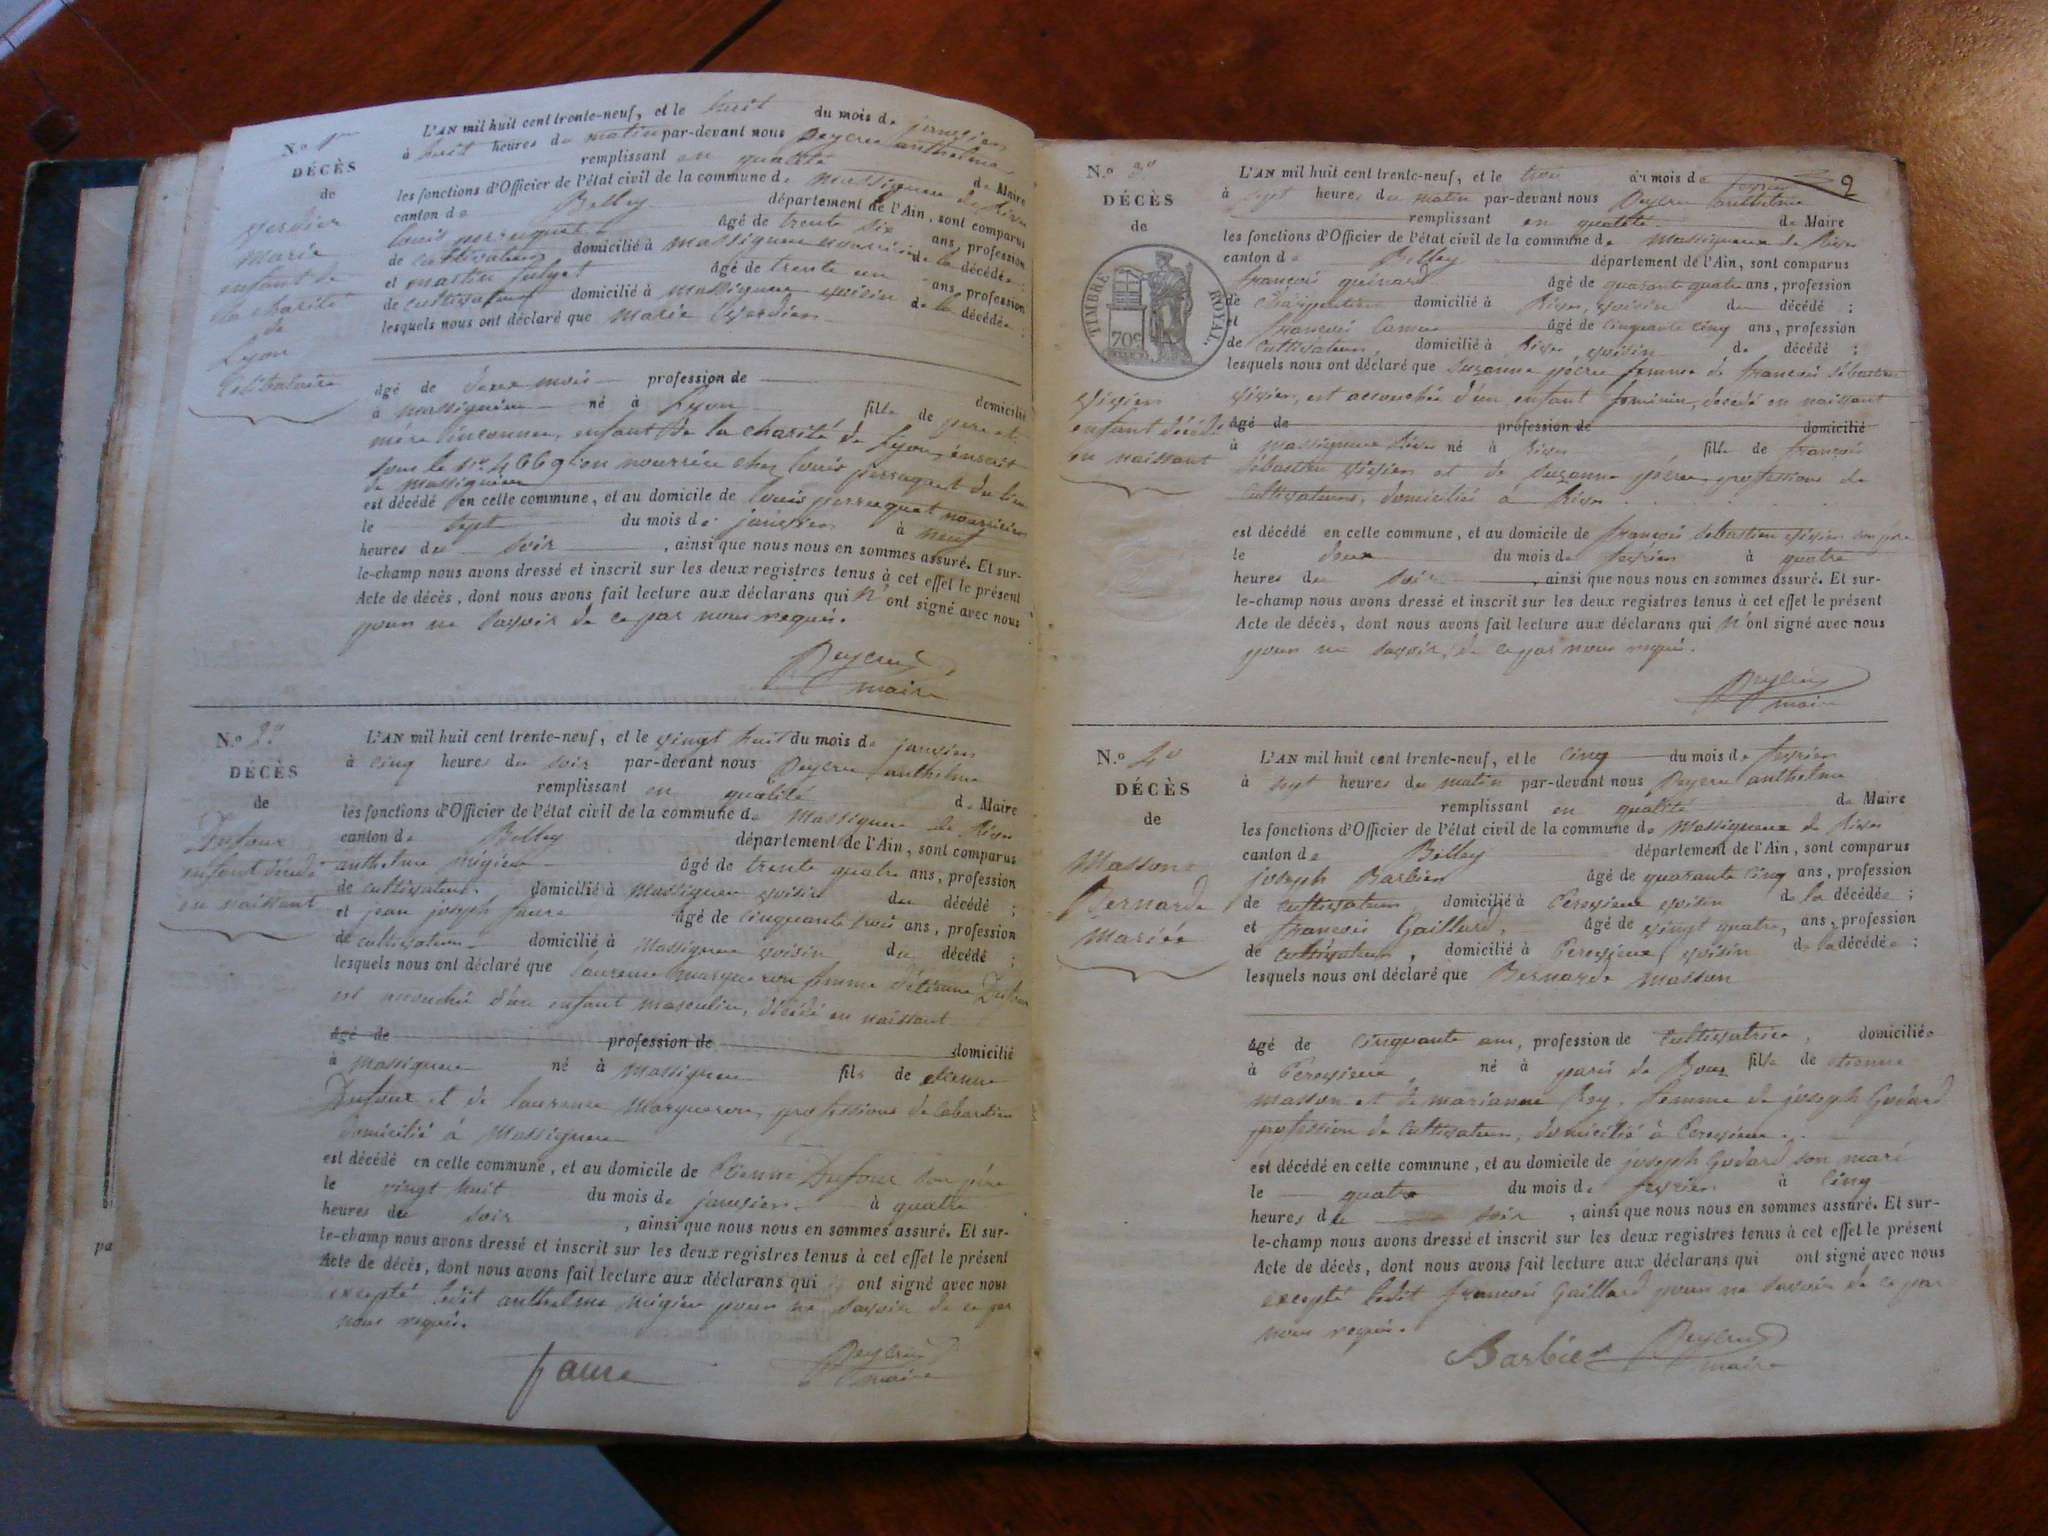 N.o 1er
DÉCÈS
de
verdier
marie
enfant de
la charité
de
Lyon
Célibataire
L'AN mil huit cent trente-neuf, et le huit du mois de janvier
à huit heures du matin par-devant nous Peycru anthelme
remplissant en qualité de Maire
les fonctions d'Officier de l'état civil de la commune de Massignieu de Rives
canton de Belley département de l'Ain, sont comparus
louis perruquet âgé de trente six ans, profession
de cultivateur domicilié à massignieu nourricier de la décédée ;
et martin âgé de trente un ans, profession
de cultivateur domicilié à massignieu voisin de la décédée ;
lesquels nous ont déclaré que Marie Verdier
âgé de deux mois profession de domicilié
à massignieu né à Lyon fille de père et
mère inconnu, enfant de la charité de Lyon, inscrit
sous le no. 4669 en nourrice chez louis perruquet du lieu
de massignieu
est décédé en cette commune, et au domicile de louis perruquet nourricier
le sept du mois de janvier à neuf
heures du soir, ainsi que nous nous en sommes assuré. Et sur-
le-champ nous avons dressé et inscrit sur les deux registres tenus à cet effet le présent
Acte de décès, dont nous avons fait lecture aux déclarans qui n'ont signé avec nous
pour ne savoir de ce par nous requis.
Peycru
maire
N.o 2d
DÉCÈS
de
Dufour
enfant décédé
en naissant
L'AN mil huit cent trente-neuf, et le vingt huit du mois de janvier
à cinq heures du soir par-devant nous Peycru anthelme
remplissant en qualité de Maire
les fonctions d'Officier de l'état civil de la commune de Massignieu de Rives
canton de Belley département de l'Ain, sont comparus
anthelme migieu âgé de trente quatre ans, profession
de cultivateur domicilié à massignieu voisin du décédé ;
et jean joseph faure âgé de cinquante trois ans, profession
de cultivateur domicilié à massignieu voisin du décédé ;
lesquels nous ont déclaré que laurence margueron femme d'étienne Dufour
est accouchée d'un enfant masculin, décédé en naissant
âgé de profession de domicilié
à massignieu né à massignieu fils de etienne
Dufour et de laurence Margueron, professions de Cabaretier
domicilié à Massignieu
est décédé en cette commune, et au domicile de Etienne Dufour son père
le vingt huit du mois de janvier à quatre
heures du soir, ainsi que nous nous en sommes assuré. Et sur-
le-champ nous avons dressé et inscrit sur les deux registres tenus à cet effet le présent
Acte de décès, dont nous avons fait lecture aux déclarans qui ont signé avec nous
excepté ledit anthelme migieu pour ne savoir de ce par
nous requis.
faure Peycru
maire
2
N.o 3e
DÉCÈS
de
TIMBRE ROYAL.
70c
vivier
enfant décédé
en naissant
L'AN mil huit cent trente-neuf, et le trois du mois de fevrier
à sept heures du matin par-devant nous Peycru anthelme
remplissant en qualité de Maire
les fonctions d'Officier de l'état civil de la commune de Massignieux de Rives
canton de Belley département de l'Ain, sont comparus
françois guénard âgé de quarante quatre ans, profession
de Charpentier domicilié à Rives, voisin du décédé ;
et françois Camus âgé de cinquante cinq ans, profession
de cultivateur, domicilié à Rives, voisin du décédé ;
lesquels nous ont déclaré que Suzanne femme de françois sébastien
vivier, est accouchée d'un enfant feminin, décédé en naissant
âgé de profession de domicilié
à massignieux Rives né à Rives fille de françois
sébastien vivier et de suzanne professions de
cultivateurs, domiciliés à Rives
est décédé en cette commune, et au domicile de françois sébastien vivier son père
le deux du mois de fevrier à quatre
heures du soir, ainsi que nous nous en sommes assuré. Et sur-
le-champ nous avons dressé et inscrit sur les deux registres tenus à cet effet le présent
Acte de décès, dont nous avons fait lecture aux déclarans qui n'ont signé avec nous
pour ne savoir, de ce par nous requis.
Peycru
maire
N.o 4e
DÉCÈS
de
Masson
Bernarde
Mariée
L'AN mil huit cent trente-neuf, et le cinq du mois de fevrier
à sept heures du matin par-devant nous Peycru anthelme
remplissant en qualité de Maire
les fonctions d'Officier de l'état civil de la commune de Massignieux de Rives
canton de Belley département de l'Ain, sont comparus
joseph Barbier âgé de quarante cinq ans, profession
de cultivateur, domicilié à Cressieux voisin de la décédée ;
et françois Gaillard, âgé de vingt quatre, ans, profession
de cultivateur, domicilié à Cressieux, voisin de la décédée ;
lesquels nous ont déclaré que Bernarde masson
âgé de cinquante ans, profession de Cultivatrice, domiciliée
à Cressieux né à parvis de Bons fille de etienne
masson et de marianne Rey, femme de joseph Godard
profession de cultivateur, domicilié à Cressieux.
est décédé en cette commune, et au domicile de joseph Godard son mari
le quatre du mois de fevrier à cinq
heures du soir, ainsi que nous nous en sommes assuré. Et sur-
le-champ nous avons dressé et inscrit sur les deux registres tenus à cet effet le présent
Acte de décès, dont nous avons fait lecture aux déclarans qui ont signé avec nous
excepté ledit françois Gaillard pour ne savoir de ce par
nous requis.
Barbier Peycru
maire